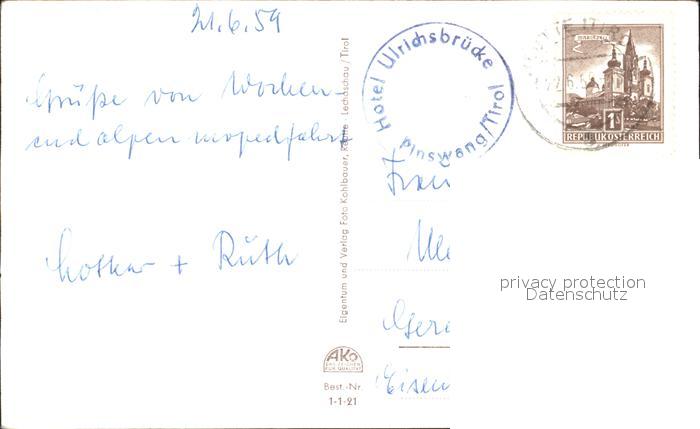 21.6.59
Grüße von Wochen-
endalpenmopedfahrt
Lothar + Ruth
Eigentum und Verlag Foto Kohlbauer, Reutte - Lechaschau / Tirol
AKO
DAS ZEICHEN
FÜR QUALITÄT
Best.-Nr.
1-1-21
Hotel Ulrichsbrücke
Pinswang/Tirol
MARIAZELL
1S
REPUBLIK ÖSTERREICH
Frau
Gere
Eisen
privacy protection
Datenschutz